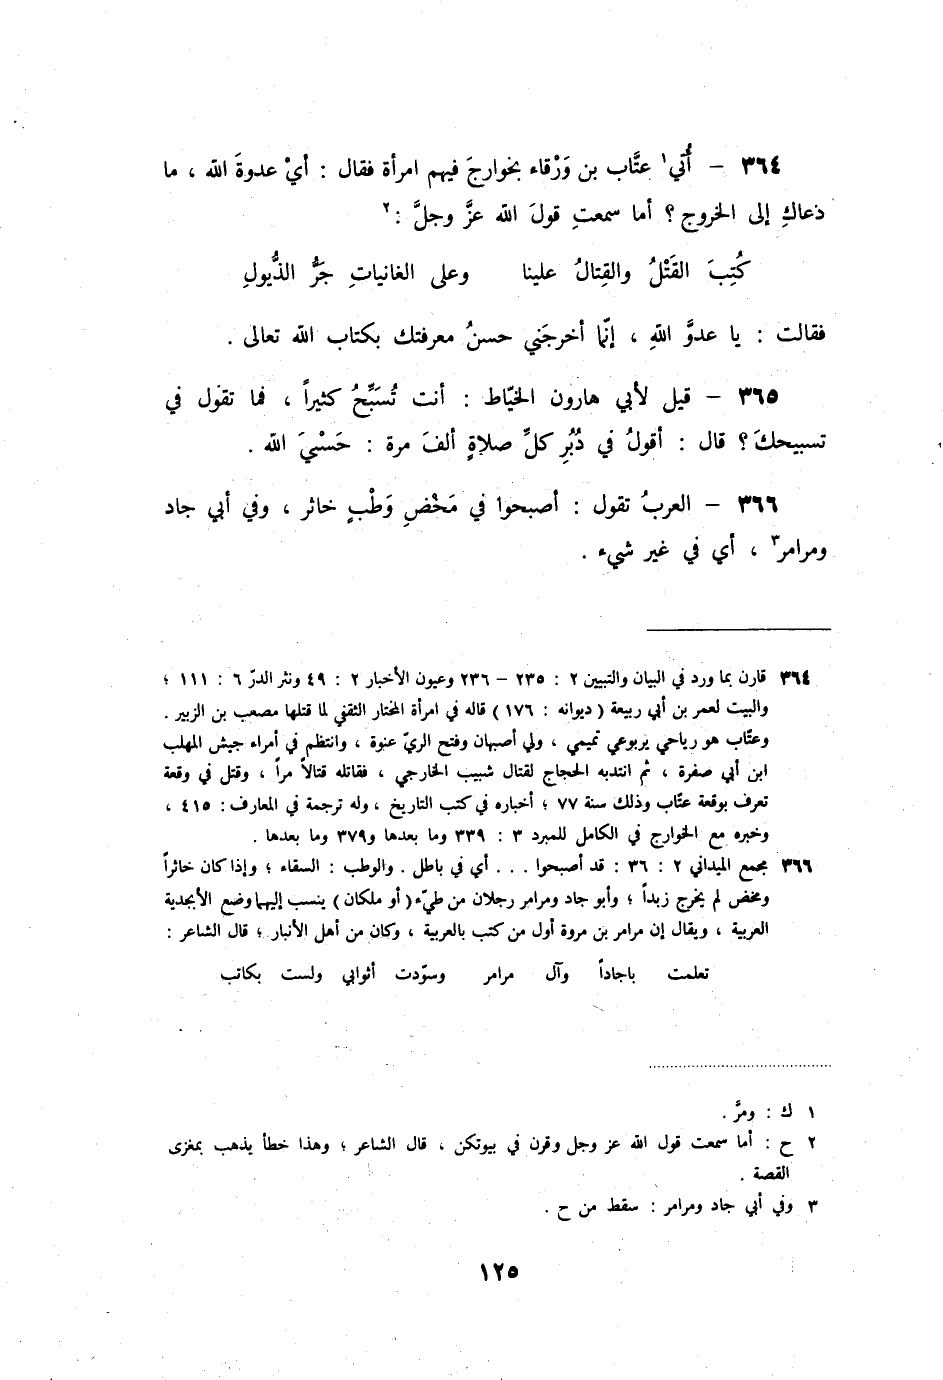 ٣٦٤ – أُتي١ عتَّاب بن وَرْقاء بخوارجَ فيهم امرأة فقال : أيْ عدوةَ الله ، ما
دعاكِ إلى الخروج ؟ أما سمعتِ قولَ الله عزَّ وجلَّ :٢
كُتِبَ القَتْلُ والقِتالُ علينا وعلى الغانياتِ جَرُّ الذُّيولِ
فقالت : يا عدوَّ اللهِ ، إنّما أخرجَني حسنُ معرفتك بكتاب الله تعالى .
٣٦٥ – قيل لأبي هارون الخيّاط : أنت تُسَبِّحُ كثيراً ، فما تقول في
تسبيحكَ ؟ قال : أقولُ في دُبُرِ كلِّ صلاةٍ ألفَ مرة : حَسْبيَ الله .
٣٦٦ – العربُ تقول : أصبحوا في مَخْضِ وَطْبٍ خاثر ، وفي أبي جاد
ومرامر٣ ، أي في غير شيء .
٣٦٤ قارن بما ورد في البيان والتبيين ٢ : ٢٣٥ – ٢٣٦ وعيون الأخبار ٢ : ٤٩ ونثر الدرّ ٦ : ١١١ ؛
والبيت لعمر بن أبي ربيعة ( ديوانه : ١٧٦ ) قاله في امرأة المختار الثقفي لما قتلها مصعب بن الزبير .
وعتّاب هو رياحي يربوعي تميمي ، ولي أصبهان وفتح الريّ عنوة ، وانتظم في أمراء جيش المهلب
ابن أبي صفرة ، ثم انتدبه الحجاج لقتال شبيب الخارجي ، فقاتله قتالاً مراً ، وقتل في وقعة
تعرف بوقعة عتّاب وذلك سنة ٧٧ ؛ أخباره في كتب التاريخ ، وله ترجمة في المعارف : ٤١٥ ،
وخبره مع الخوارج في الكامل للمبرد ٣ : ٣٣٩ وما بعدها و٣٧٩ وما بعدها .
٣٦٦ مجمع الميداني ٢ : ٣٦ : قد أصبحوا . . . أي في باطل . والوطب : السقاء ؛ وإذا كان خاثراً
ومخض لم يخرج زبداً ؛ وأبو جاد ومرامر رجلان من طيّء ( أو ملكان ) ينسب إليهما وضع الأبجدية
العربية ، ويقال إن مرامر بن مروة أول من كتب بالعربية ، وكان من أهل الأنبار ؛ قال الشاعر :
تعلمت باجاداً وآل مرامر وسوّدت أثوابي ولست بكاتب
١ ك : ومرَّ .
٢ ح : أما سمعت قول الله عز وجل وقرن في بيوتكن ، قال الشاعر ؛ وهذا خطأ يذهب بمغزى
القصة .
٣ وفي أبي جاد ومرامر : سقط من ح .
١٢٥